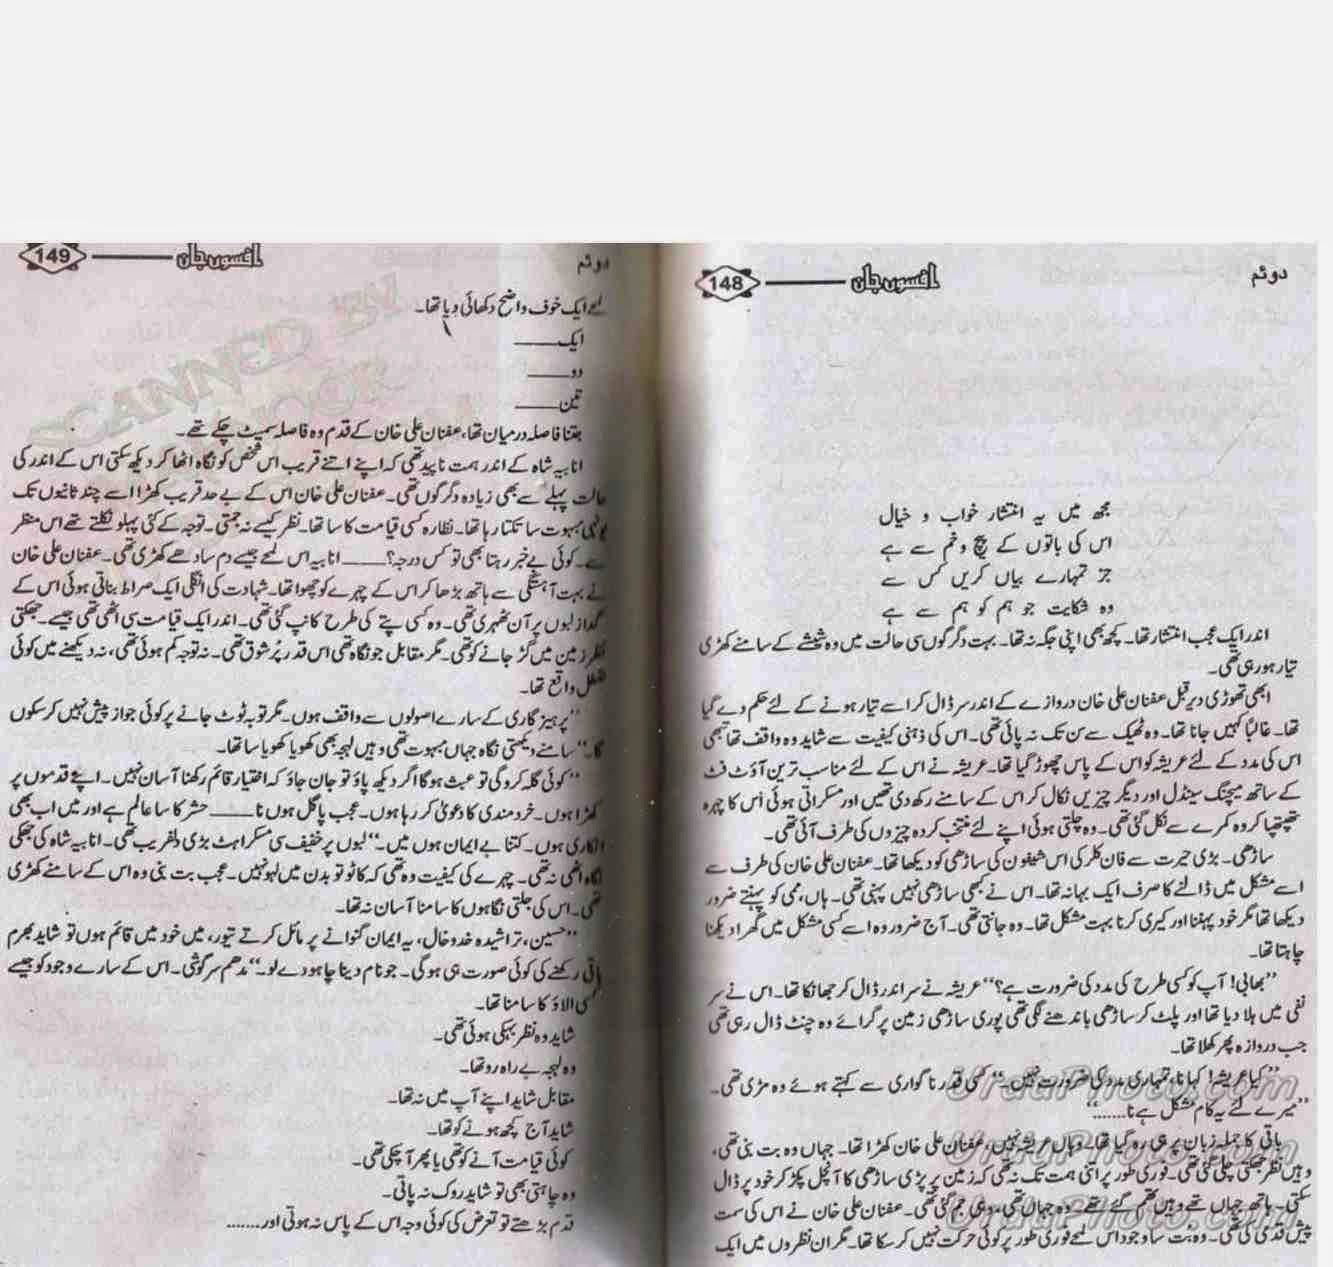 دوئم
افسوں جاں
148
مجھ میں یہ انتشار خواب و خیال
اس کی باتوں کے پیچ و خم سے ہے
جز تمہارے بیاں کریں کس سے
وہ شکایت جو ہم کو ہم سے ہے
اندر ایک عجب انتشار تھا۔ کچھ بھی اپنی جگہ نہ تھا۔ بہت دگرگوں سی حالت میں وہ شیشے کے سامنے کھڑی
تیار ہو رہی تھی۔
ابھی تھوڑی دیر قبل عفنان علی خان دروازے کے اندر سر ڈال کر اسے تیار ہونے کے لئے حکم دے گیا
تھا۔ غالباً کہیں جانا تھا۔ وہ ٹھیک سے سن تک نہ پائی تھی۔ اس کی ذہنی کیفیت سے شاید وہ واقف تھا تبھی
اس کی مدد کے لئے عریشہ کو اس کے پاس چھوڑ گیا تھا۔ عریشہ نے اس کے لئے مناسب ترین آؤٹ فٹ
کے ساتھ میچنگ سینڈل اور دیگر چیزیں نکال کر اس کے سامنے رکھ دی تھیں اور مسکراتی ہوئی اس کا چہرہ
تھپتھپا کر وہ کمرے سے نکل گئی تھی۔ وہ چلتی ہوئی اپنے لئے منتخب کردہ چیزوں کی طرف آئی تھی۔
ساڑھی۔ بڑی حیرت سے فان کلر کی اس شیفون کی ساڑھی کو دیکھا تھا۔ عفنان علی خان کی طرف سے
اسے مشکل میں ڈالنے کا صرف ایک بہانہ تھا۔ اس نے کبھی ساڑھی نہیں پہنی تھی۔ ہاں، ممی کو پہنتے ضرور
دیکھا تھا مگر خود پہننا اور کیری کرنا بہت مشکل تھا۔ وہ جانتی تھی۔ آج ضرور وہ اسے کسی مشکل میں گھرا دیکھنا
چاہتا تھا۔
”بھابی! آپ کو کسی طرح کی مدد کی ضرورت ہے؟“ عریشہ نے سر اندر ڈال کر جھانکا تھا۔ اس نے سر
نفی میں ہلا دیا تھا اور پلٹ کر ساڑھی باندھنے لگی تھی پوری ساڑھی زمین پر گرائے وہ چنٹ ڈال رہی تھی
جب دروازہ پھر کھلا تھا۔
”کیا عریشہ! کہا نا، تمہاری مدد کی ضرورت نہیں۔“ کسی قدر ناگواری سے کہتے ہوئے وہ مڑی تھی۔
”میرے لئے یہ کام مشکل ہے نا.......“
باقی کا جملہ زبان پر ہی رہ گیا تھا۔ وہاں عریشہ نہیں، عفنان علی خان کھڑا تھا۔ جہاں وہ بت بنی تھی،
وہیں نظر جھکتی چلی گئی تھی۔ فوری طور پر اتنی ہمت تک نہ تھی کہ زمین پر پڑی ساڑھی کا آنچل پکڑ کر خود پر ڈال
سکتی۔ ہاتھ جہاں تھے وہیں تھم گئے تھے۔ وہ جہاں تھی، وہی جم گئی تھی۔ عفنان علی خان نے اس کی سمت
پیش قدمی کی تھی۔ وہ بت سا وجود اس لمحے فوری طور پر کوئی حرکت نہیں کر سکا تھا۔ مگر ان نظروں میں ایک
UrduPhoto.com
UrduPhoto.com
UrduPhoto.com
دوئم
افسوں جاں
149
لمحے ایک خوف واضح دکھائی دیا تھا۔
ایک ـــــــ
دو ـــــــ
تین ـــــــ
جتنا فاصلہ درمیان تھا، عفنان علی خان کے قدم وہ فاصلہ سمیٹ چکے تھے۔
انابیہ شاہ کے اندر ہمت ناپید تھی کہ اپنے اتنے قریب اس شخص کو نگاہ اٹھا کر دیکھ سکتی اس کے اندر کی
حالت پہلے سے بھی زیادہ دگرگوں تھی۔ عفنان علی خان اس کے بے حد قریب کھڑا اسے چند ثانیوں تک
یونہی مبہوت سا تکتا رہا تھا۔ نظارہ کسی قیامت کا سا تھا۔ نظر کیسے نہ جمتی۔ توجہ کے کئی پہلو نکلتے تھے اس منظر
سے۔ کوئی بے خبر رہتا بھی تو کس درجہ؟ ـــــــ انابیہ اس لمحے جیسے دم سادھے کھڑی تھی۔ عفنان علی خان
نے بہت آہستگی سے ہاتھ بڑھا کر اس کے چہرے کو چھوا تھا۔ شہادت کی انگلی ایک صراط بناتی ہوئی اس کے
گداز لبوں پر آن ٹھہری تھی۔ وہ کسی پتے کی طرح کانپ گئی تھی۔ اندر ایک قیامت سی اٹھی تھی جیسے۔ جھکتی
نظر زمین میں گڑ جانے کو تھی۔ مگر مقابل جو نگاہ تھی اس قدر پُر شوق تھی۔ نہ توجہ کم ہوئی تھی، نہ دیکھنے میں کوئی
تعطل واقع تھا۔
”پرہیز گاری کے سارے اصولوں سے واقف ہوں۔ مگر توبہ ٹوٹ جانے پر کوئی جواز پیش نہیں کر سکوں
گا۔“ سامنے دیکھتی نگاہ جہاں مبہوت تھی وہیں لہجہ بھی کھویا کھویا سا تھا۔
”کوئی گلہ کرو گی تو عبث ہو گا اگر دیکھ پاؤ تو جان جاؤ کہ اختیار قائم رکھنا آسان نہیں۔ اپنے قدموں پر
کھڑا ہوں۔ خرد مندی کا دعویٰ کر رہا ہوں۔ عجب پاگل ہوں نا ـــــــ حشر کا سا عالم ہے اور میں اب بھی
انکاری ہوں۔ کتنا بے ایمان ہوں میں۔“ لبوں پر خفیف سی مسکراہٹ بڑی دلفریب تھی۔ انابیہ شاہ کی جھکی
نگاہ اٹھی نہ تھی۔ چہرے کی کیفیت وہ تھی کہ کاٹو تو بدن میں لہو نہیں۔ عجب بت بنی وہ اس کے سامنے کھڑی
تھی۔ اس کی جلتی نگاہوں کا سامنا آسان نہ تھا۔
”حسین، تراشیدہ خدوخال، یہ ایمان گنوانے پر مائل کرتے تیور، میں خود میں قائم ہوں تو شاید بھرم
باقی رکھنے کی کوئی صورت ہی ہو گی۔ جو نام دینا چاہو دے لو۔“ مدھم سرگوشی۔ اس کے سارے وجود کو جیسے
کسی الاؤ کا سامنا تھا۔
شاید وہ نظر بہکی ہوئی تھی۔
وہ لہجہ بے راہ رو تھا۔
مقابل شاید اپنے آپ میں نہ تھا۔
شاید آج کچھ ہونے کو تھا۔
کوئی قیامت آنے کو تھی یا پھر آ چکی تھی۔
وہ چاہتی بھی تو شاید روک نہ پاتی۔
قدم بڑھتے تو تعرض کی کوئی وجہ اس کے پاس نہ ہوتی اور.......
SCANNED BY